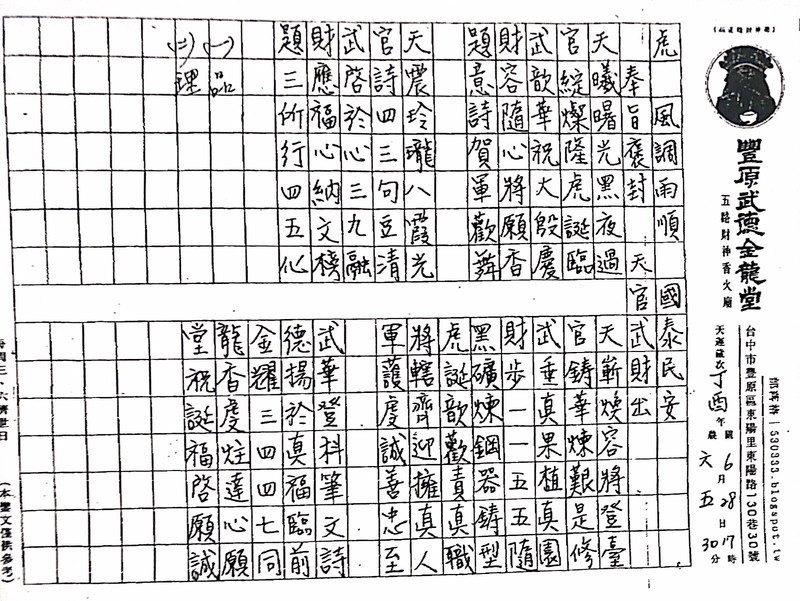 豐原武德金龍堂
五路財神香火廟
部落格｜530333.blogspot.tw
台中市豐原區東陽里東陽路130巷30號
天運歲次丁酉年 國6月28日17時
農六五30分
虎 風調雨順 國泰民安
奉旨褒封 天官武財出
天曦曙光黑夜過
官綻燦隆虎誕臨
武歆華祝大殷慶
財容隨心將願香
題意詩賀軍歡舞
天嶄煥容將登臺
官鑄華煉艱是修
武垂真果植真園
財步一一五五隨
黑礦煉鋼器鑄型
虎誕歆歡責真職
將轄齊迎擁真人
軍護度誠善忠至
天震玲瓏八霞光
官詩四三句豆清
武啓於心三九融
財應福心納文榜
題三所行四五化
武華登科筆文詩
德揚於真福臨前
金耀三四四七同
龍香慶炷達心願
堂祝誕福啓願誠
(一)品
(二)理
每周三、六濟世日
（本鸞文僅供參考）